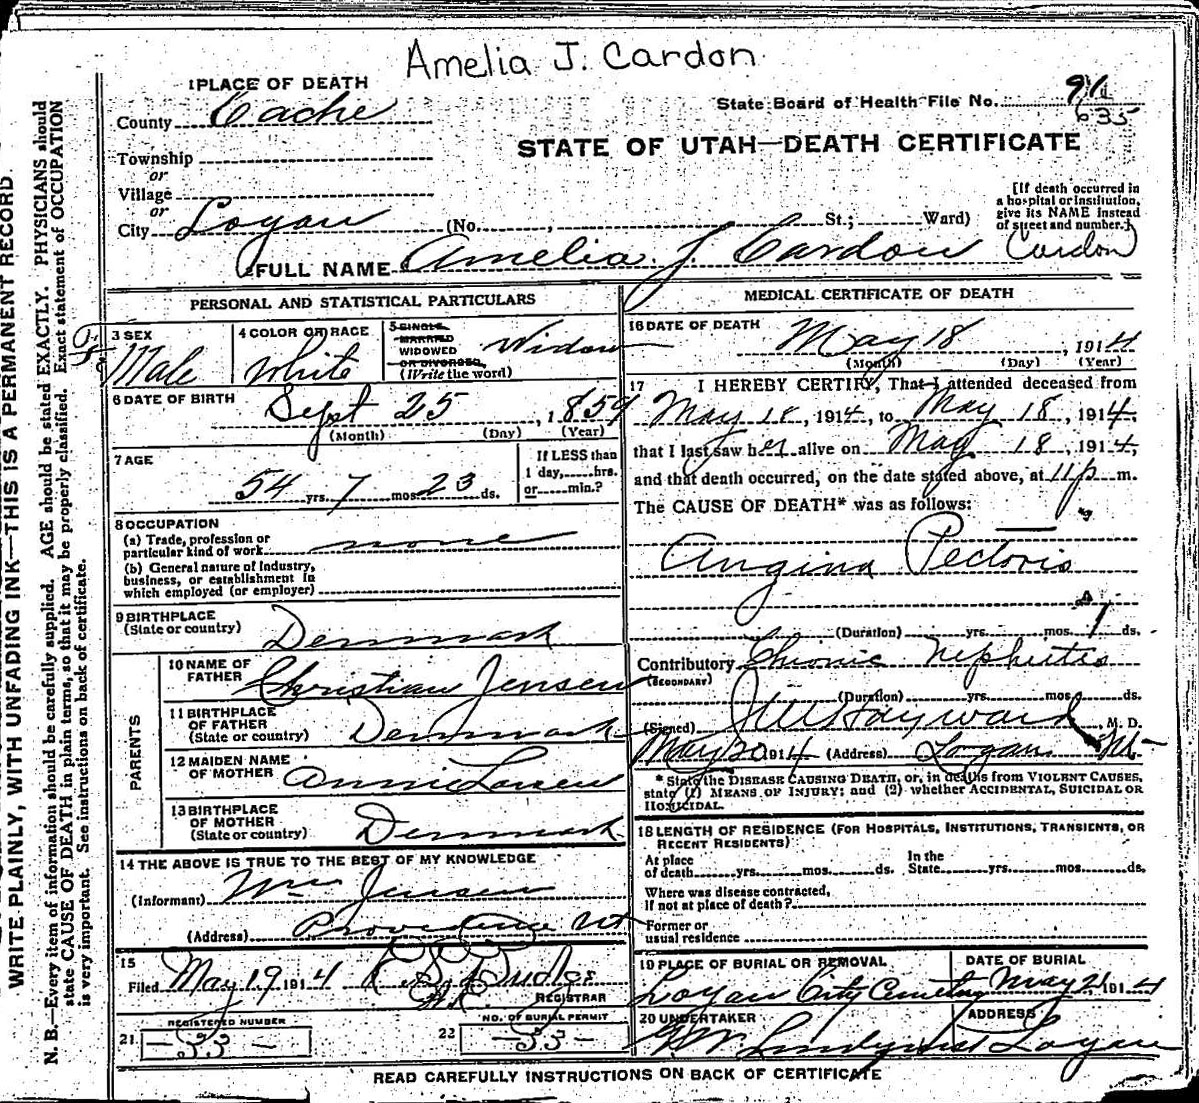 Amelia J. Cardon
1 PLACE OF DEATH
County Cache
State Board of Health File No. 91
635
STATE OF UTAH—DEATH CERTIFICATE
Township
or
Village
or
City Logan (No. , St.; Ward)
[If death occurred in
a hospital or institution,
give its NAME instead
of street and number.]
2 FULL NAME Amelia J. Cardon (Cardon)
PERSONAL AND STATISTICAL PARTICULARS
3 SEX
Male
4 COLOR OR RACE
White
5 SINGLE,
MARRIED
WIDOWED
OR DIVORCED,
(Write the word)
Widow
6 DATE OF BIRTH Sept 25, 1859
(Month) (Day) (Year)
7 AGE
54 yrs. 7 mos. 23 ds.
If LESS than
1 day, hrs.
or min.?
8 OCCUPATION
(a) Trade, profession or
particular kind of work none
(b) General nature of Industry,
business, or establishment in
which employed (or employer)
9 BIRTHPLACE
(State or country) Denmark
PARENTS
10 NAME OF
FATHER Christian Jensen
11 BIRTHPLACE
OF FATHER
(State or country) Denmark
12 MAIDEN NAME
OF MOTHER Annie Larsen
13 BIRTHPLACE
OF MOTHER
(State or country) Denmark
14 THE ABOVE IS TRUE TO THE BEST OF MY KNOWLEDGE
(Informant) Wm Jensen
(Address) Providence Ut
15
Filed May 19 1914
REGISTRAR
REGISTERED NUMBER
21 — 33 —
NO. OF BURIAL PERMIT
22 — 33 —
MEDICAL CERTIFICATE OF DEATH
16 DATE OF DEATH May 18, 1914
(Month) (Day) (Year)
17 I HEREBY CERTIFY, That I attended deceased from
May 18, 1914, to May 18, 1914,
that I last saw her alive on May 18, 1914,
and that death occurred, on the date stated above, at 11 p m.
The CAUSE OF DEATH* was as follows:
Angina Pectoris
(Duration) yrs. mos. 1 ds.
Contributory Chronic Nephritis
(SECONDARY)
(Duration) yrs. mos. ds.
(Signed) Hayward, M. D.
May 20 1914 (Address) Logan Ut—
* State the DISEASE CAUSING DEATH, or, in deaths from VIOLENT CAUSES,
state (1) MEANS OF INJURY; and (2) whether ACCIDENTAL, SUICIDAL OR
HOMICIDAL.
18 LENGTH OF RESIDENCE (FOR HOSPITALS, INSTITUTIONS, TRANSIENTS, OR
RECENT RESIDENTS)
At place
of death yrs. mos. ds.
In the
State yrs. mos. ds.
Where was disease contracted,
if not at place of death?
Former or
usual residence
19 PLACE OF BURIAL OR REMOVAL
Logan City Cemetery
DATE OF BURIAL
May 21 1914
20 UNDERTAKER
Lindquist
ADDRESS
Logan
READ CAREFULLY INSTRUCTIONS ON BACK OF CERTIFICATE
WRITE PLAINLY, WITH UNFADING INK—THIS IS A PERMANENT RECORD
N. B.—Every item of information should be carefully supplied. AGE should be stated EXACTLY. PHYSICIANS should
state CAUSE OF DEATH in plain terms, so that it may be properly classified. Exact statement of OCCUPATION
is very important. See instructions on back of certificate.